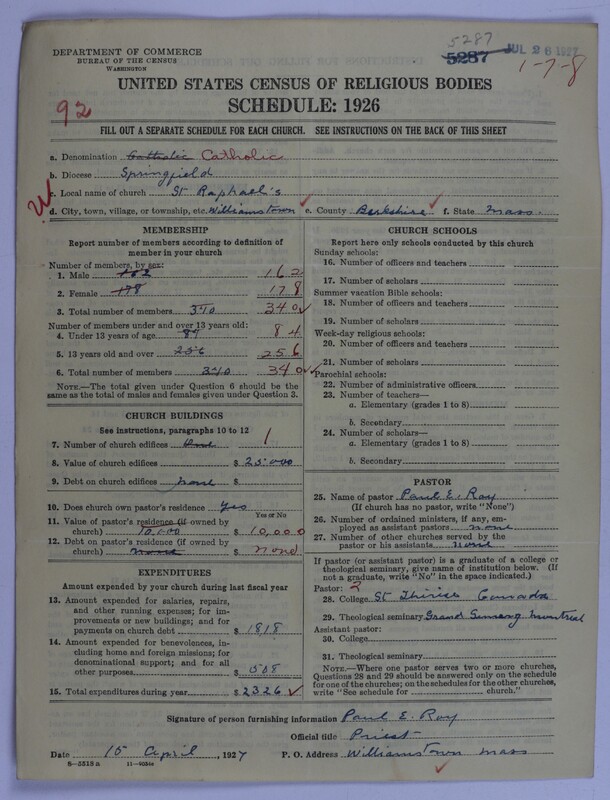 5287
DEPARTMENT OF COMMERCE
BUREAU OF THE CENSUS
WASHINGTON
5287
JUL 26 1927
1-7-8
UNITED STATES CENSUS OF RELIGIOUS BODIES
SCHEDULE: 1926
92
FILL OUT A SEPARATE SCHEDULE FOR EACH CHURCH. SEE INSTRUCTIONS ON THE BACK OF THIS SHEET
a. Denomination Catholic Catholic
b. Diocese Springfield
c. Local name of church St Raphael's
W
d. City, town, village, or township, etc. Williamstown e. County Berkshire f. State Mass.
MEMBERSHIP
Report number of members according to definition of
member in your church
Number of members, by sex:
1. Male 162 162
2. Female 178 178
3. Total number of members 340 340
Number of members under and over 13 years old:
4. Under 13 years of age 84 84
5. 13 years old and over 256 256
6. Total number of members 340 340
NOTE.—The total given under Question 6 should be
the same as the total of males and females given under Question 3.
CHURCH BUILDINGS
See instructions, paragraphs 10 to 12
7. Number of church edifices One 1
8. Value of church edifices $ 25000
9. Debt on church edifices none $
10. Does church own pastor's residence Yes
Yes or No
11. Value of pastor's residence (if owned by
church) 10,000 $ 10,000
12. Debt on pastor's residence (if owned by
church) none $ none
EXPENDITURES
Amount expended by your church during last fiscal year
13. Amount expended for salaries, repairs,
and other running expenses; for im-
provements or new buildings; and for
payments on church debt $ 1818
14. Amount expended for benevolences, in-
cluding home and foreign missions; for
denominational support; and for all
other purposes $ 508
15. Total expenditures during year $ 2326
CHURCH SCHOOLS
Report here only schools conducted by this church
Sunday schools:
16. Number of officers and teachers
17. Number of scholars
Summer vacation Bible schools:
18. Number of officers and teachers
19. Number of scholars
Week-day religious schools:
20. Number of officers and teachers
21. Number of scholars
Parochial schools:
22. Number of administrative officers
23. Number of teachers—
a. Elementary (grades 1 to 8)
b. Secondary
24. Number of scholars—
a. Elementary (grades 1 to 8)
b. Secondary
PASTOR
25. Name of pastor Paul E. Roy
(If church has no pastor, write "None")
26. Number of ordained ministers, if any, em-
ployed as assistant pastors none
27. Number of other churches served by the
pastor or his assistants none
If pastor (or assistant pastor) is a graduate of a college or
theological seminary, give name of institution below. (If
not a graduate, write "No" in the space indicated.)
Pastor: 2
28. College St Canada
29. Theological seminary Grand Montreal
Assistant pastor:
30. College
31. Theological seminary
NOTE.—Where one pastor serves two or more churches,
Questions 28 and 29 should be answered only on the schedule
for one of the churches; on the schedules for the other churches,
write "See schedule for church."
Signature of person furnishing information Paul E. Roy
Official title Priest
Date 15 April, 1927 P. O. Address Williamstown Mass
8—5313a 11—9034a